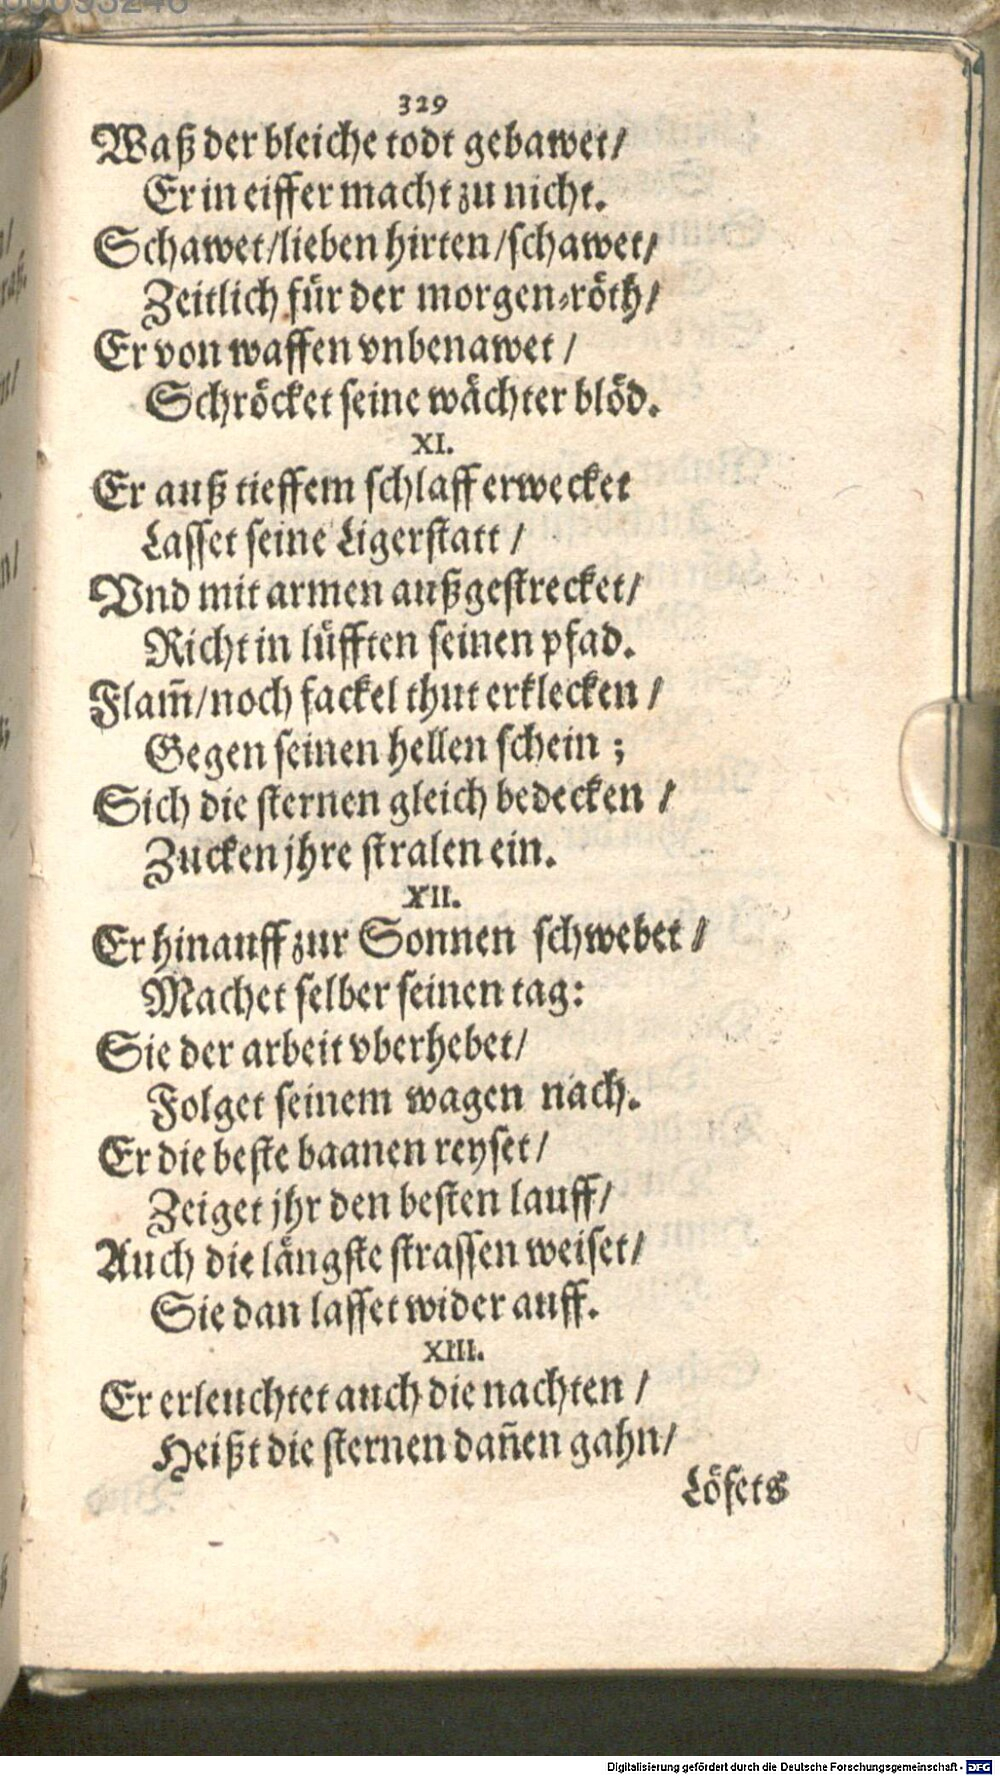 329
Waß der bleiche todt gebawet/
Er in eiffer macht zu nicht.
Schawet/lieben hirten/schawet/
Zeitlich für der morgen-röth/
Er von waffen vnbenawet /
Schröcket seine wächter blöd.
XI.
Er auß tieffem schlaff erwecket
Lasset seine Ligerstatt /
Vnd mit armen außgestrecket/
Richt in lüfften seinen pfad.
Flam̃/noch fackel thut erklecken /
Gegen seinen hellen schein ;
Sich die sternen gleich bedecken /
Zucken jhre stralen ein.
XII.
Er hinauff zur Sonnen schwebet /
Machet selber seinen tag:
Sie der arbeit vberhebet/
Folget seinem wagen nach.
Er die beste baanen reyset/
Zeiget jhr den besten lauff/
Auch die längste strassen weiset/
Sie dan lasset wider auff.
XIII.
Er erleuchtet auch die nachten /
Heißt die sternen dañen gahn/
Lösets
Digitalisierung gefördert durch die Deutsche Forschungsgemeinschaft - DFG